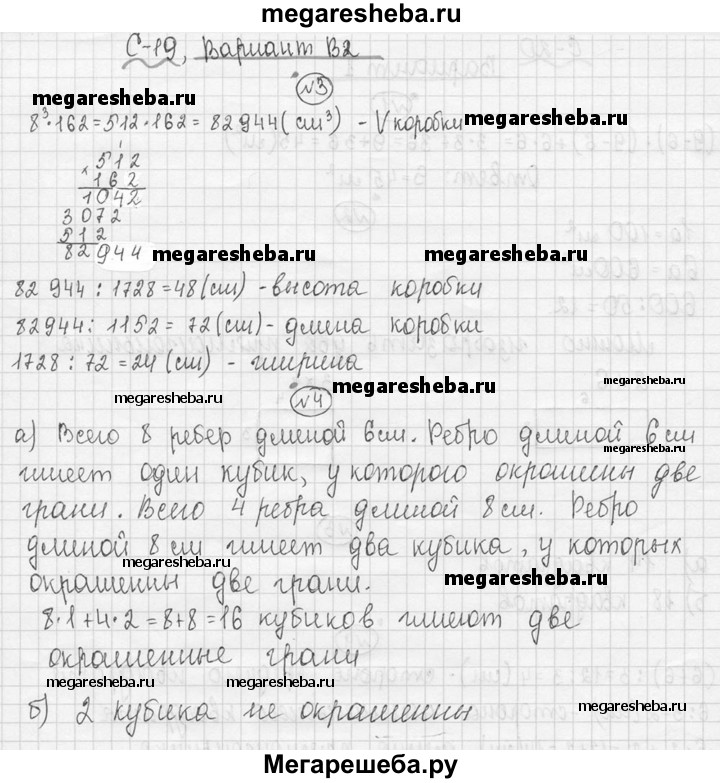 megaresheba.ru
С-19, Вариант В2
№3
megaresheba.ru
8³·162=512·162=82944(см³) - V коробки megaresheba.ru
512
× 162
1042
3072
512
82944 megaresheba.ru megaresheba.ru
82 944 : 1728=48(см) - высота коробки
82944 : 1152 = 72(см) - длина коробки
1728 : 72 = 24 (см) - ширина
megaresheba.ru №4 megaresheba.ru
а) Всего 8 ребер длиной 6см. Ребро длиной 6см
megaresheba.ru
имеет один кубик, у которого окрашены две
грани. Всего 4 ребра длиной 8см. Ребро
длиной 8см имеет два кубика, у которых
окрашенны две грани.
megaresheba.ru megaresheba.ru
8·1+4·2=8+8=16 кубиков имеют две
окрашенные грани
megaresheba.ru megaresheba.ru megaresheba.ru
б) 2 кубика не окрашенны
megaresheba.ru
Мегарешеба.ру